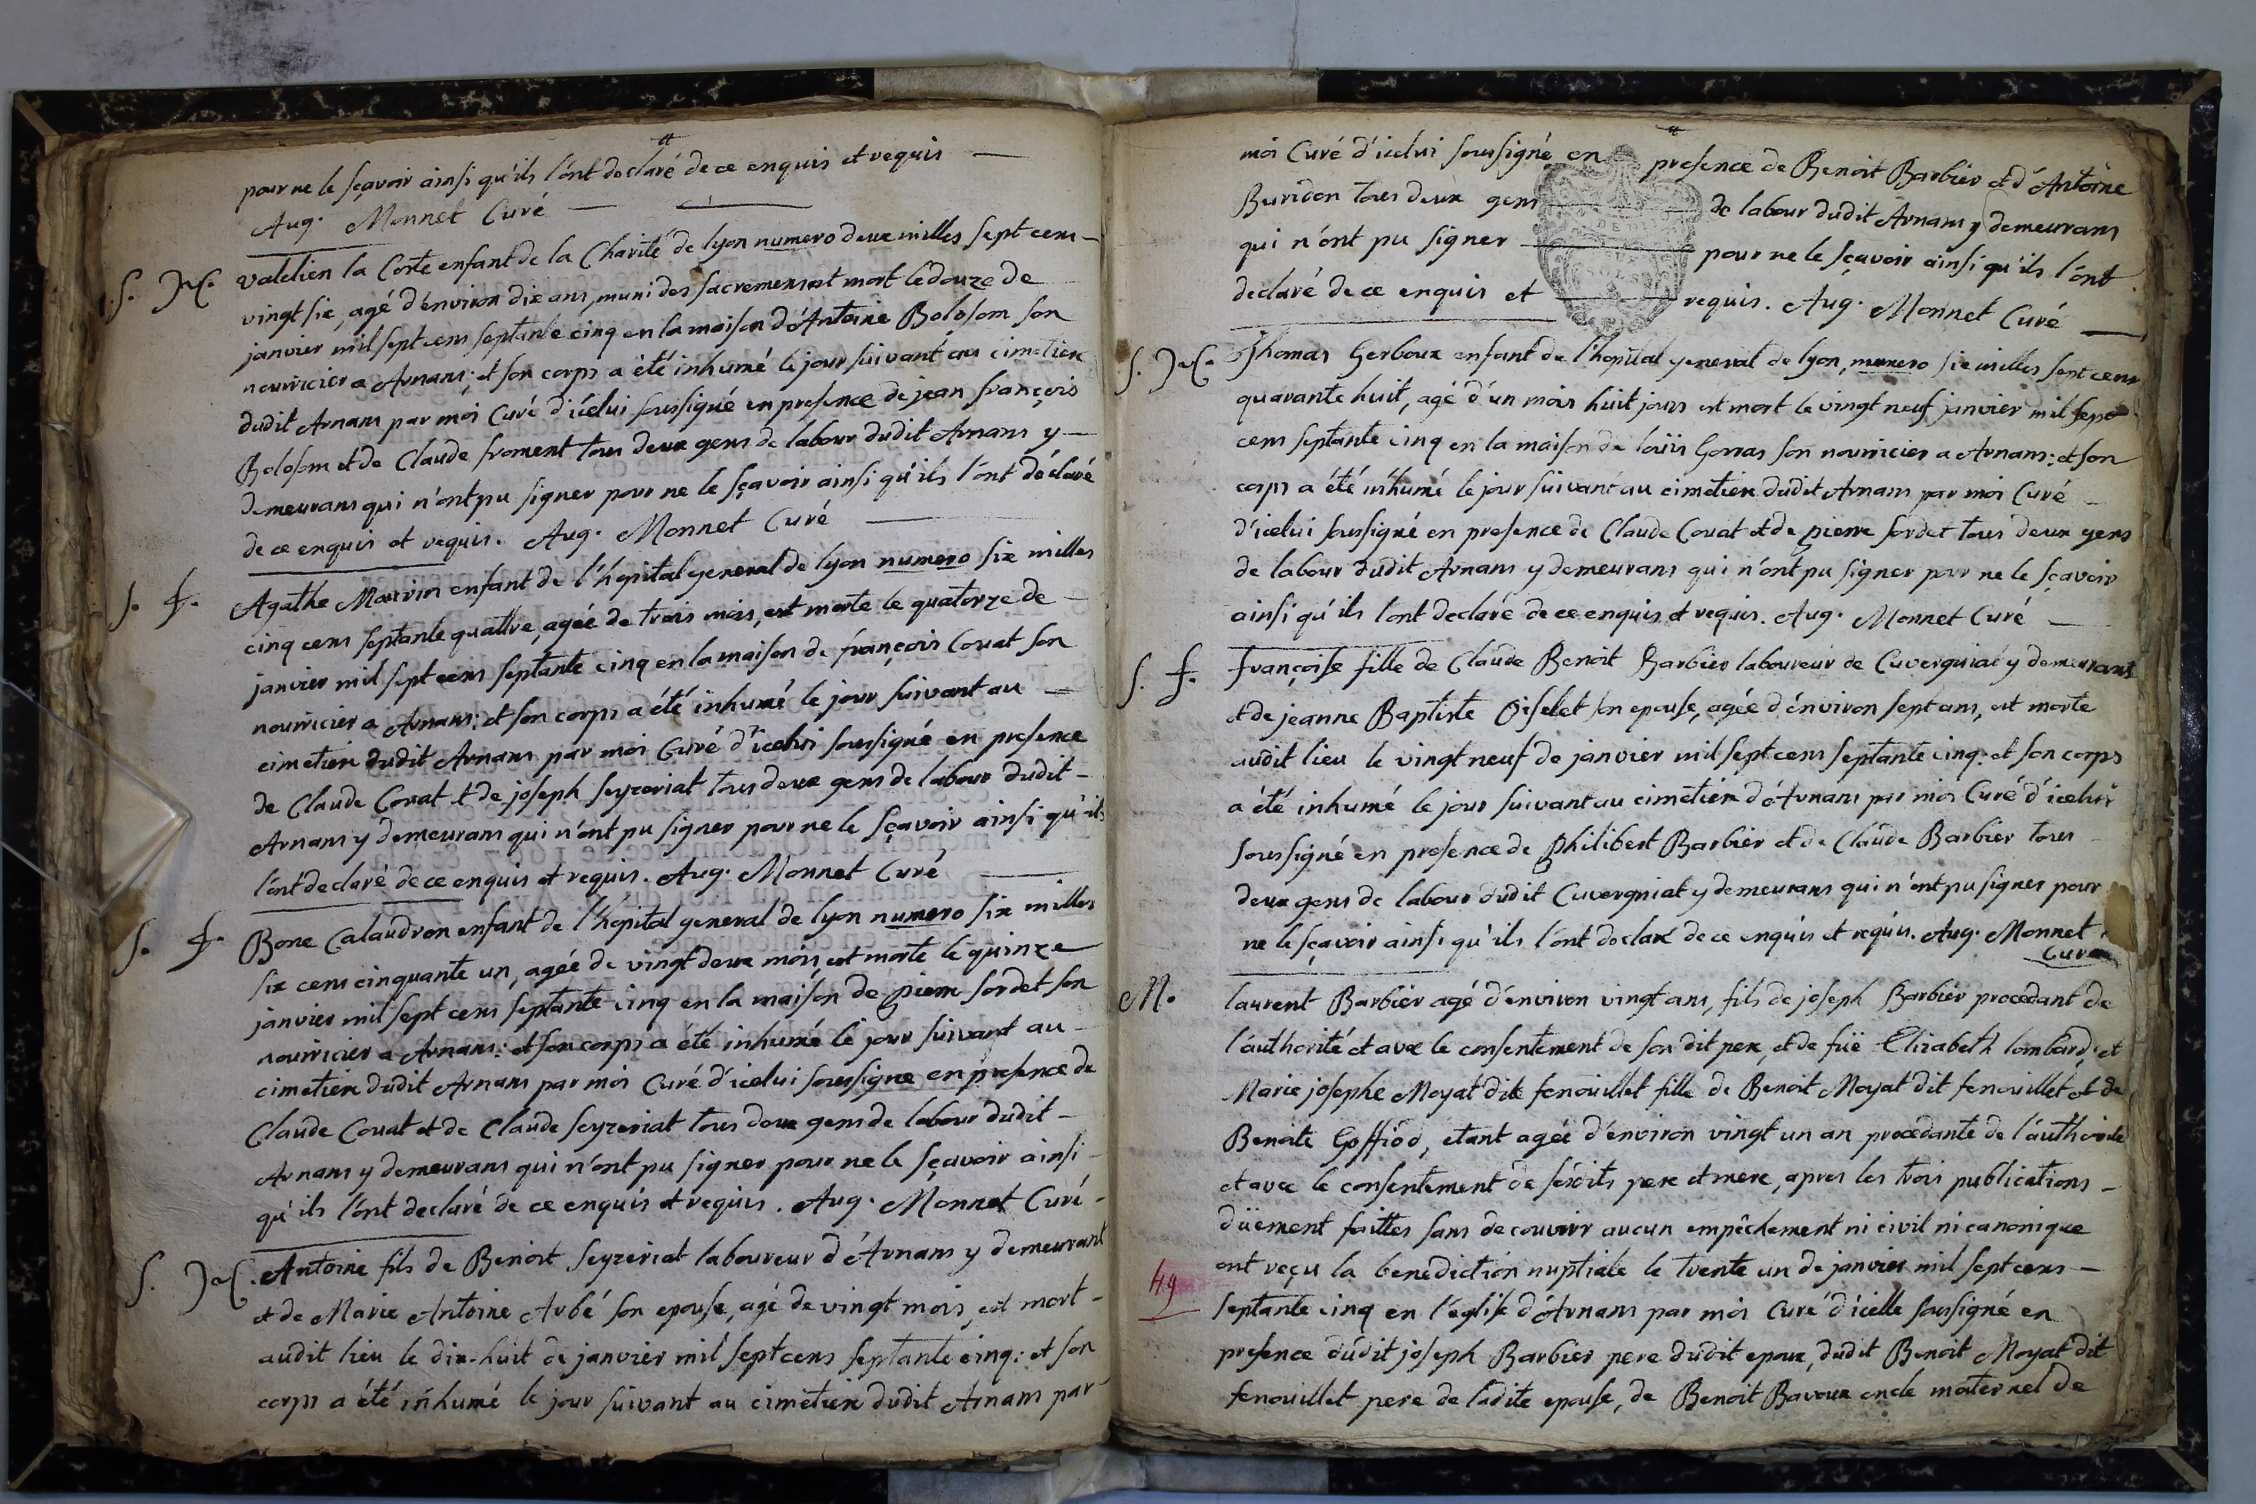 pour ne le sçavoir ainsi qu'ils l'ont declaré de ce enquis et requis
Aug. Monnet Curé
S.
valelien la Coste enfant de la Charité de lyon numero deux milles sept cens
vingt six, agé d'environ dix ans, muni des sacremens est mort le douze de
janvier mil sept cens septante cinq en la maison d'Antoine Bolosom son
nourricier a Arnans; et son corps a été inhumé le jour suivant au cimetiere
dudit Arnans par moi Curé d'icelui soussigné en presence de jean françois
Bolosom et de Claude froment tous deux gens de labour dudit Arnans y
demeurans qui n'ont pu signer pour ne le sçavoir ainsi qu'ils l'ont déclaré
de ce enquis et requis. Aug. Monnet Curé
S. f.
Agathe Mourvin enfant de l'hopital general de lyon numero six milles
cinq cens septante quattre, agée de trois mois, est morte le quatorze de
janvier mil sept cens septante cinq en la maison de françois Couat son
nourricier a Arnans; et son corps a été inhumé le jour suivant au
cimetiere dudit Arnans par moi Curé d'icelui soussigné en presence
de Claude Couat et de joseph seyzeriat tous deux gens de labour dudit
Arnans y demeurans qui n'ont pu signer pour ne le sçavoir ainsi qu'ils
l'ont declaré de ce enquis et requis. Aug. Monnet Curé
S. f.
Bone Calaudron enfant de l'hopital general de lyon numero six milles
six cens cinquante un, agée de vingt deux mois, est morte le quinze
janvier mil sept cens septante cinq en la maison de pierre sordet son
nourricier a Arnans: et son corps a été inhumé le jour suivant au
cimetiere dudit Arnans par moi Curé d'icelui soussigné en presence de
Claude Couat et de Claude seyzeriat tous deux gens de labour dudit
Arnans y demeurans qui n'ont pu signer pour ne le sçavoir ainsi
qu'ils l'ont declaré de ce enquis et requis. Aug. Monnet Curé
S.
Antoine fils de Benoit seyzeriat laboureur d'Arnans y demeurant
et de Marie Antoine Arbé son epouse, agé de vingt mois, est mort
audit lieu le dix-huit de janvier mil sept cens septante cinq: et son
corps a été inhumé le jour suivant au cimetiere dudit Arnans par
moi Curé d'icelui soussigné en presence de Benoit Barbier et d'Antoine
Buridon tous deux gens de labour dudit Arnans y demeurans
qui n'ont pu signer pour ne le sçavoir ainsi qu'ils l'ont
declaré de ce enquis et requis. Aug. Monnet Curé
S.
Thomas Gerboux enfant de l'hopital general de lyon, numero six milles sept cens
quarante huit, agé d'un mois huit jours est mort le vingt neuf janvier mil sept
cens septante cinq en la maison de loüis Gorras son nourricier a Arnans: et son
corps a été inhumé le jour suivant au cimetiere dudit Arnans par moi Curé
d'icelui soussigné en presence de Claude Couat et de pierre sordet tous deux gens
de labour dudit Arnans y demeurans qui n'ont pu signer pour ne le sçavoir
ainsi qu'ils l'ont declaré de ce enquis et requis. Aug. Monnet Curé
S. f.
françoise fille de Claude Benoit Barbier laboureur de Cuvergniat y demeurant
et de jeanne Baptiste Oiselet son epouse, agée d'environ sept ans, est morte
audit lieu le vingt neuf de janvier mil sept cens septante cinq: et son corps
a été inhumé le jour suivant au cimetiere d'Arnans par moi Curé d'icelui
soussigné en presence de Philibert Barbier et de Claude Barbier tous
deux gens de labour dudit Cuvergniat y demeurans qui n'ont pu signer pour
ne le sçavoir ainsi qu'ils l'ont declaré de ce enquis et requis. Aug. Monnet
Curé
M.
laurent Barbier agé d'environ vingt ans, fils de joseph Barbier procedant de
l'authorité et avec le consentement de son dit pere et de füe Elizabeth lombard; et
Marie josephe Moyat dite fenouillet fille de Benoit Moyat dit fenouillet et de
Benoite Goffiod, etant agée d'environ vingt un an procedante de l'authorité
et avec le consentement de sesdits pere et mere, apres les trois publications
düement faittes sans decouvrir aucun empêchement ni civil ni canonique
ont reçu la benediction nuptiale le trente un de janvier mil sept cens
49
septante cinq en l'église d'Arnans par moi Curé d'icelle soussigné en
presence dudit joseph Barbier pere dudit epoux, dudit Benoit Moyat dit
fenouillet pere de ladite epouse, de Benoit Bavoux oncle maternel de